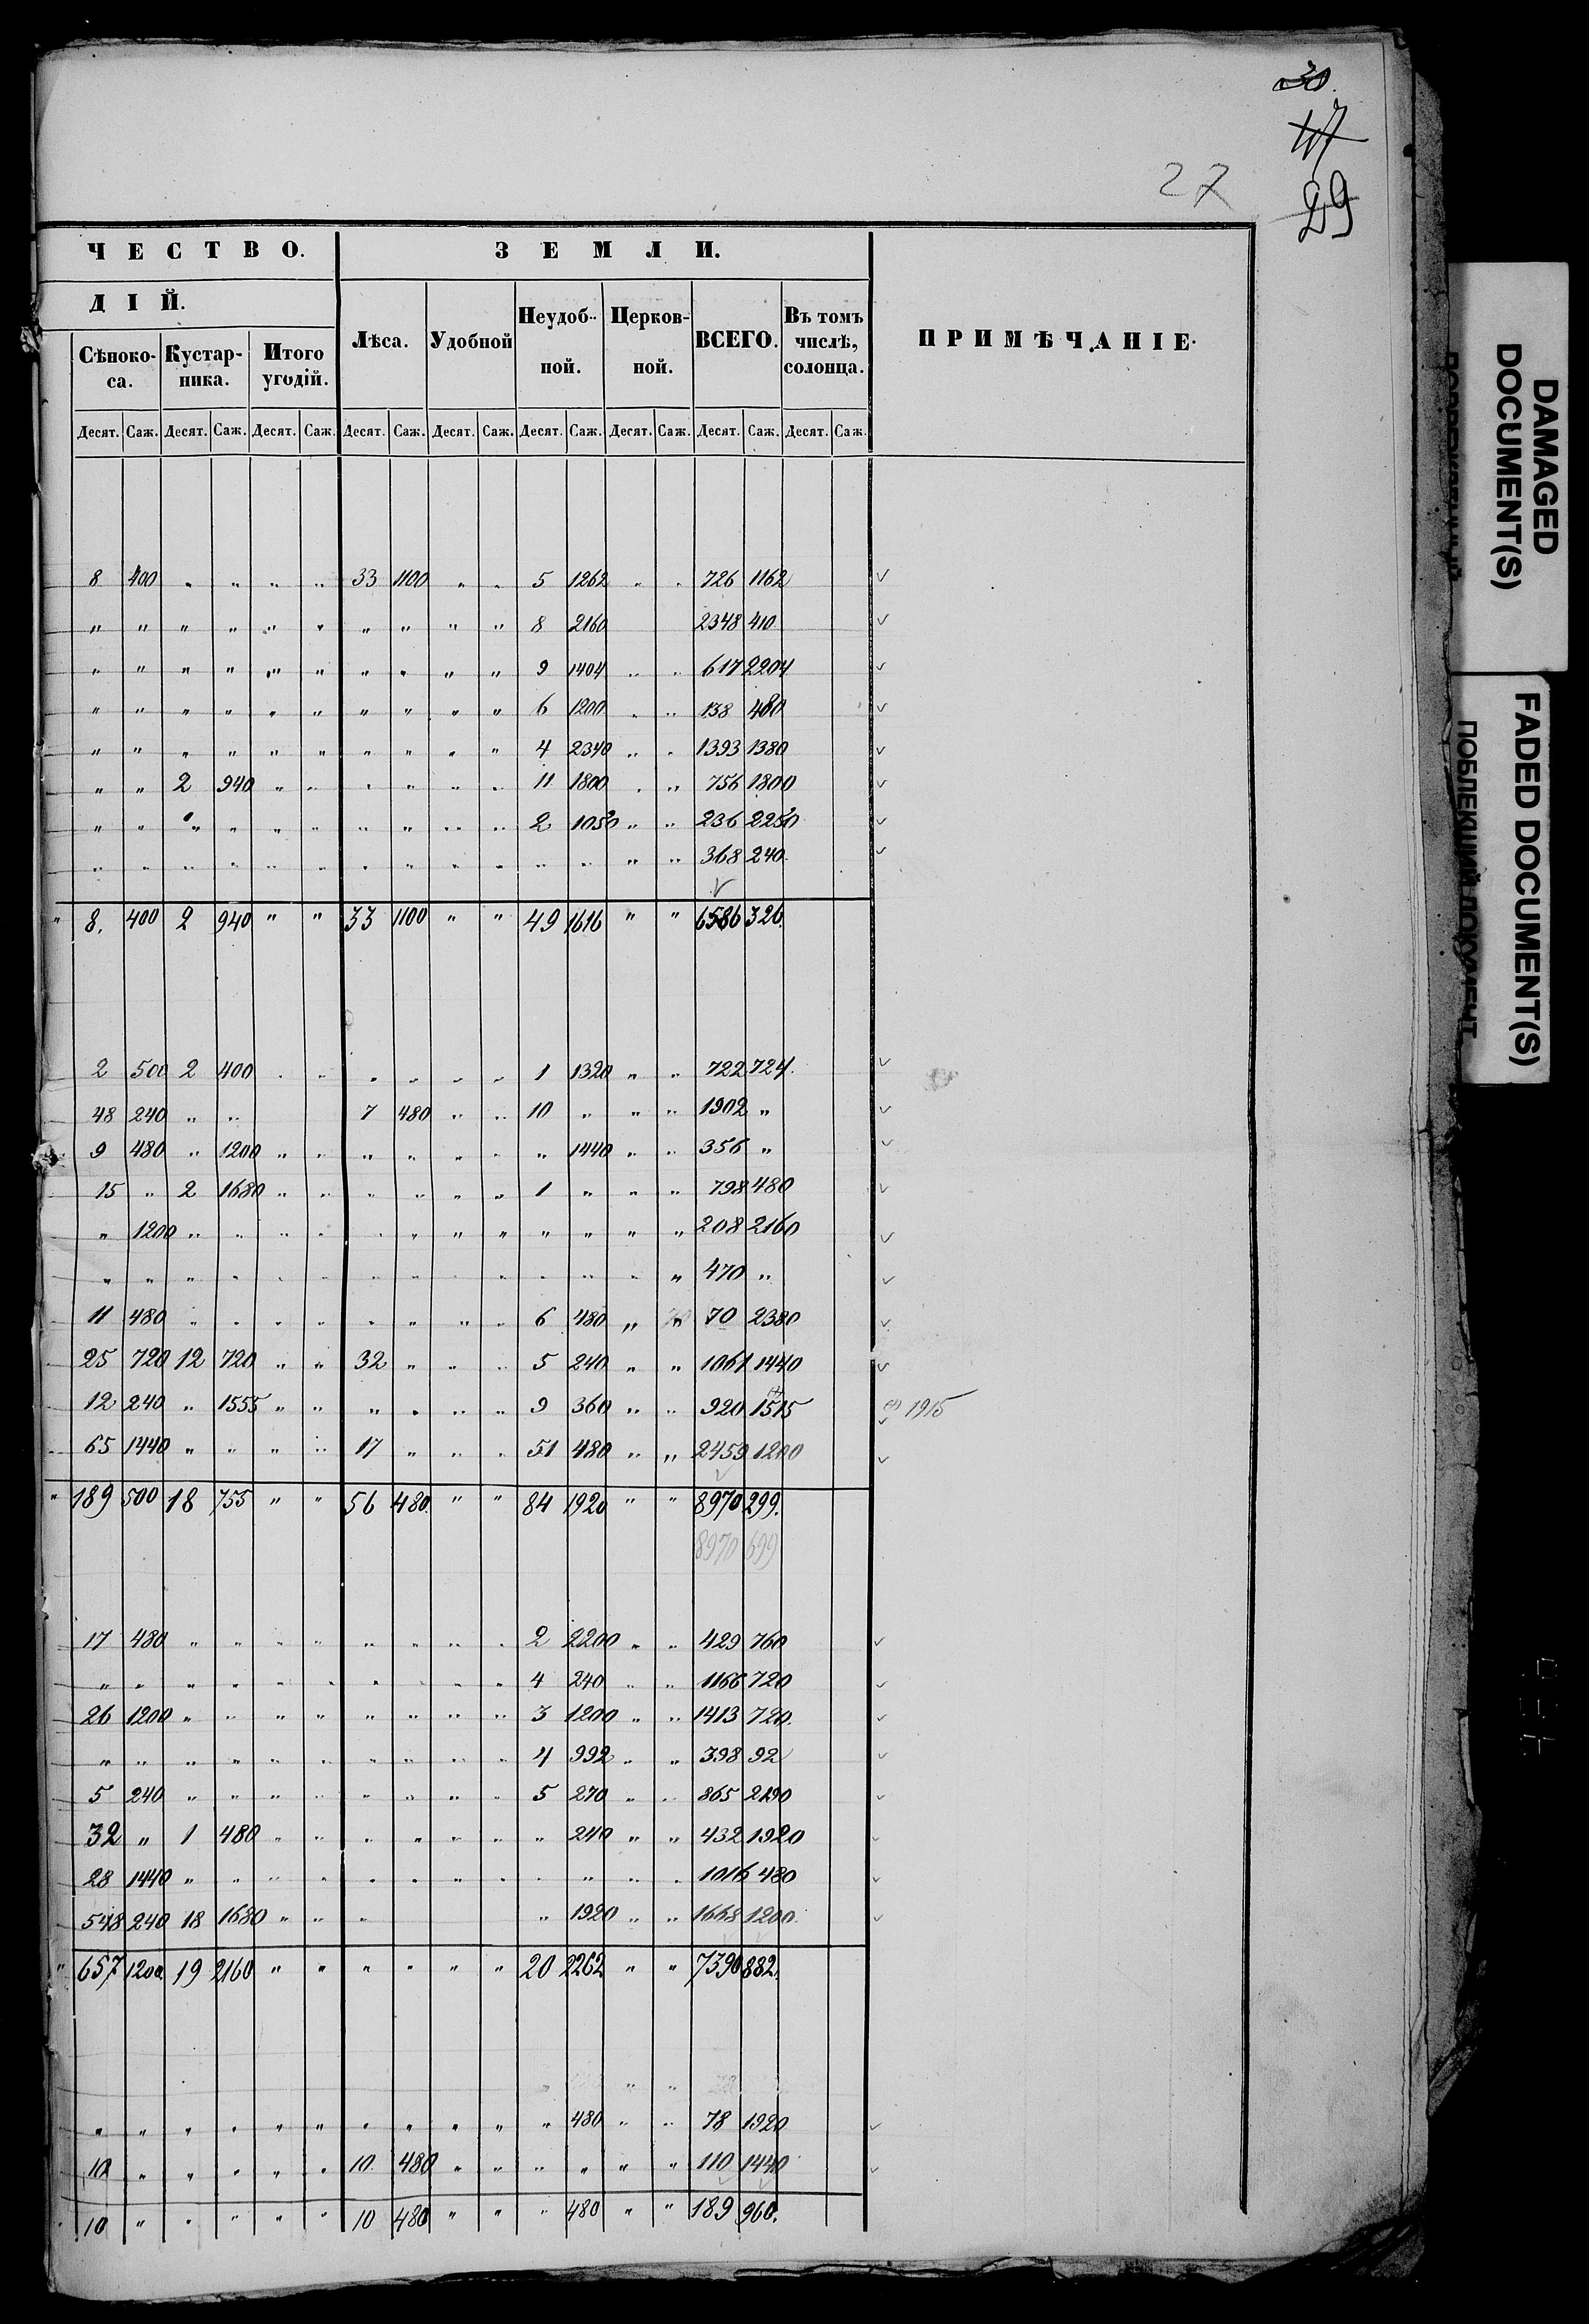 30.
47
27
29
ЧЕСТВО. ЗЕМЛИ.
ДІЙ.
Сѣноко-са. Кустар-ника. Итого угодій. Лѣса. Удобной Неудоб-ной. Церков-ной. ВСЕГО. Въ томъ числѣ, солонца. ПРИМѢЧАНІЕ.
Десят. Саж. Десят. Саж. Десят. Саж. Десят. Саж. Десят. Саж. Десят. Саж. Десят. Саж. Десят. Саж. Десят. Саж.
8 400 " " " " 33 1100 " " 5 1262 " " 726 1162
" " " " " " " " " " 8 2160 2348 410
" " " " " " " " " " 9 1404 " " 617 2204
" " " " " " " " " " 6 1200 " " 138 480
" " " " " " " " " " 4 2340 " " 1393 1380
" " 2 940 " " " " " " 11 1800 " " 756 1800
" " " " " " " " " " 2 1050 " " 236 2250
" " " " " " " " " " " " " " 368 240
" 8. 400 2 940 " " 33 1100 " " 49 1616 " " 6586 326.
2 500 2 400 " " " " " " 1 1320 " " 722 724.
48 240 " " 7 480 " " 10 " " " 1902 "
9 480 " 1200 " " " " " " " 1440 " " 356 "
15 " 2 1680 " " " " " " 1 " " " 798 480
" 1200 " " " " " " " " " " " " 208 2160
" " " " " " " " " " " " " " 470 "
11 480 " " " " " " " " 6 480 " " 70 2380
25 720 12 720 " " 32 " " " 5 240 " " 1061 1440
12 240 " 1555 " " " " " " 9 360 " " 920 1515 1915
65 1440 " " " " 17 " " " 51 480 " " 2459 1200
" 189 500 18 755 " " 56 480. " " 84 1920 " " 8970 299.
8970 699
17 480 " " " " " " " " 2 2200 " " 429 760
" " " " " " " " " " 4 240 " " 1166 720
26 1200 " " " " " " " " 3 1200 " " 1413 720.
" " " " " " " " " " 4 992 " " 398 92
5 240 " " " " " " " " 5 270 " " 865 2190
32 " 1 480 " " " " " " " 240 " " 432 1920
28 1440 " " " " " " " " " " " " 1016 480
548 240 18 1680 " " " " 1920 " " 1668 1200.
" 657 1200 19 2160 " " " " " " 20 2262 " " 7390 882.
" " " " " " " " " " " 480 " " 78 1920
10 " " " " " 10 480 " " " " " " 110 1440
10 " " " " " 10 480 " " " 480 " " 189 960.
DAMAGED DOCUMENT(S)
FADED DOCUMENT(S)
ПОБЛЕКШИЙ ДОКУМЕНТ